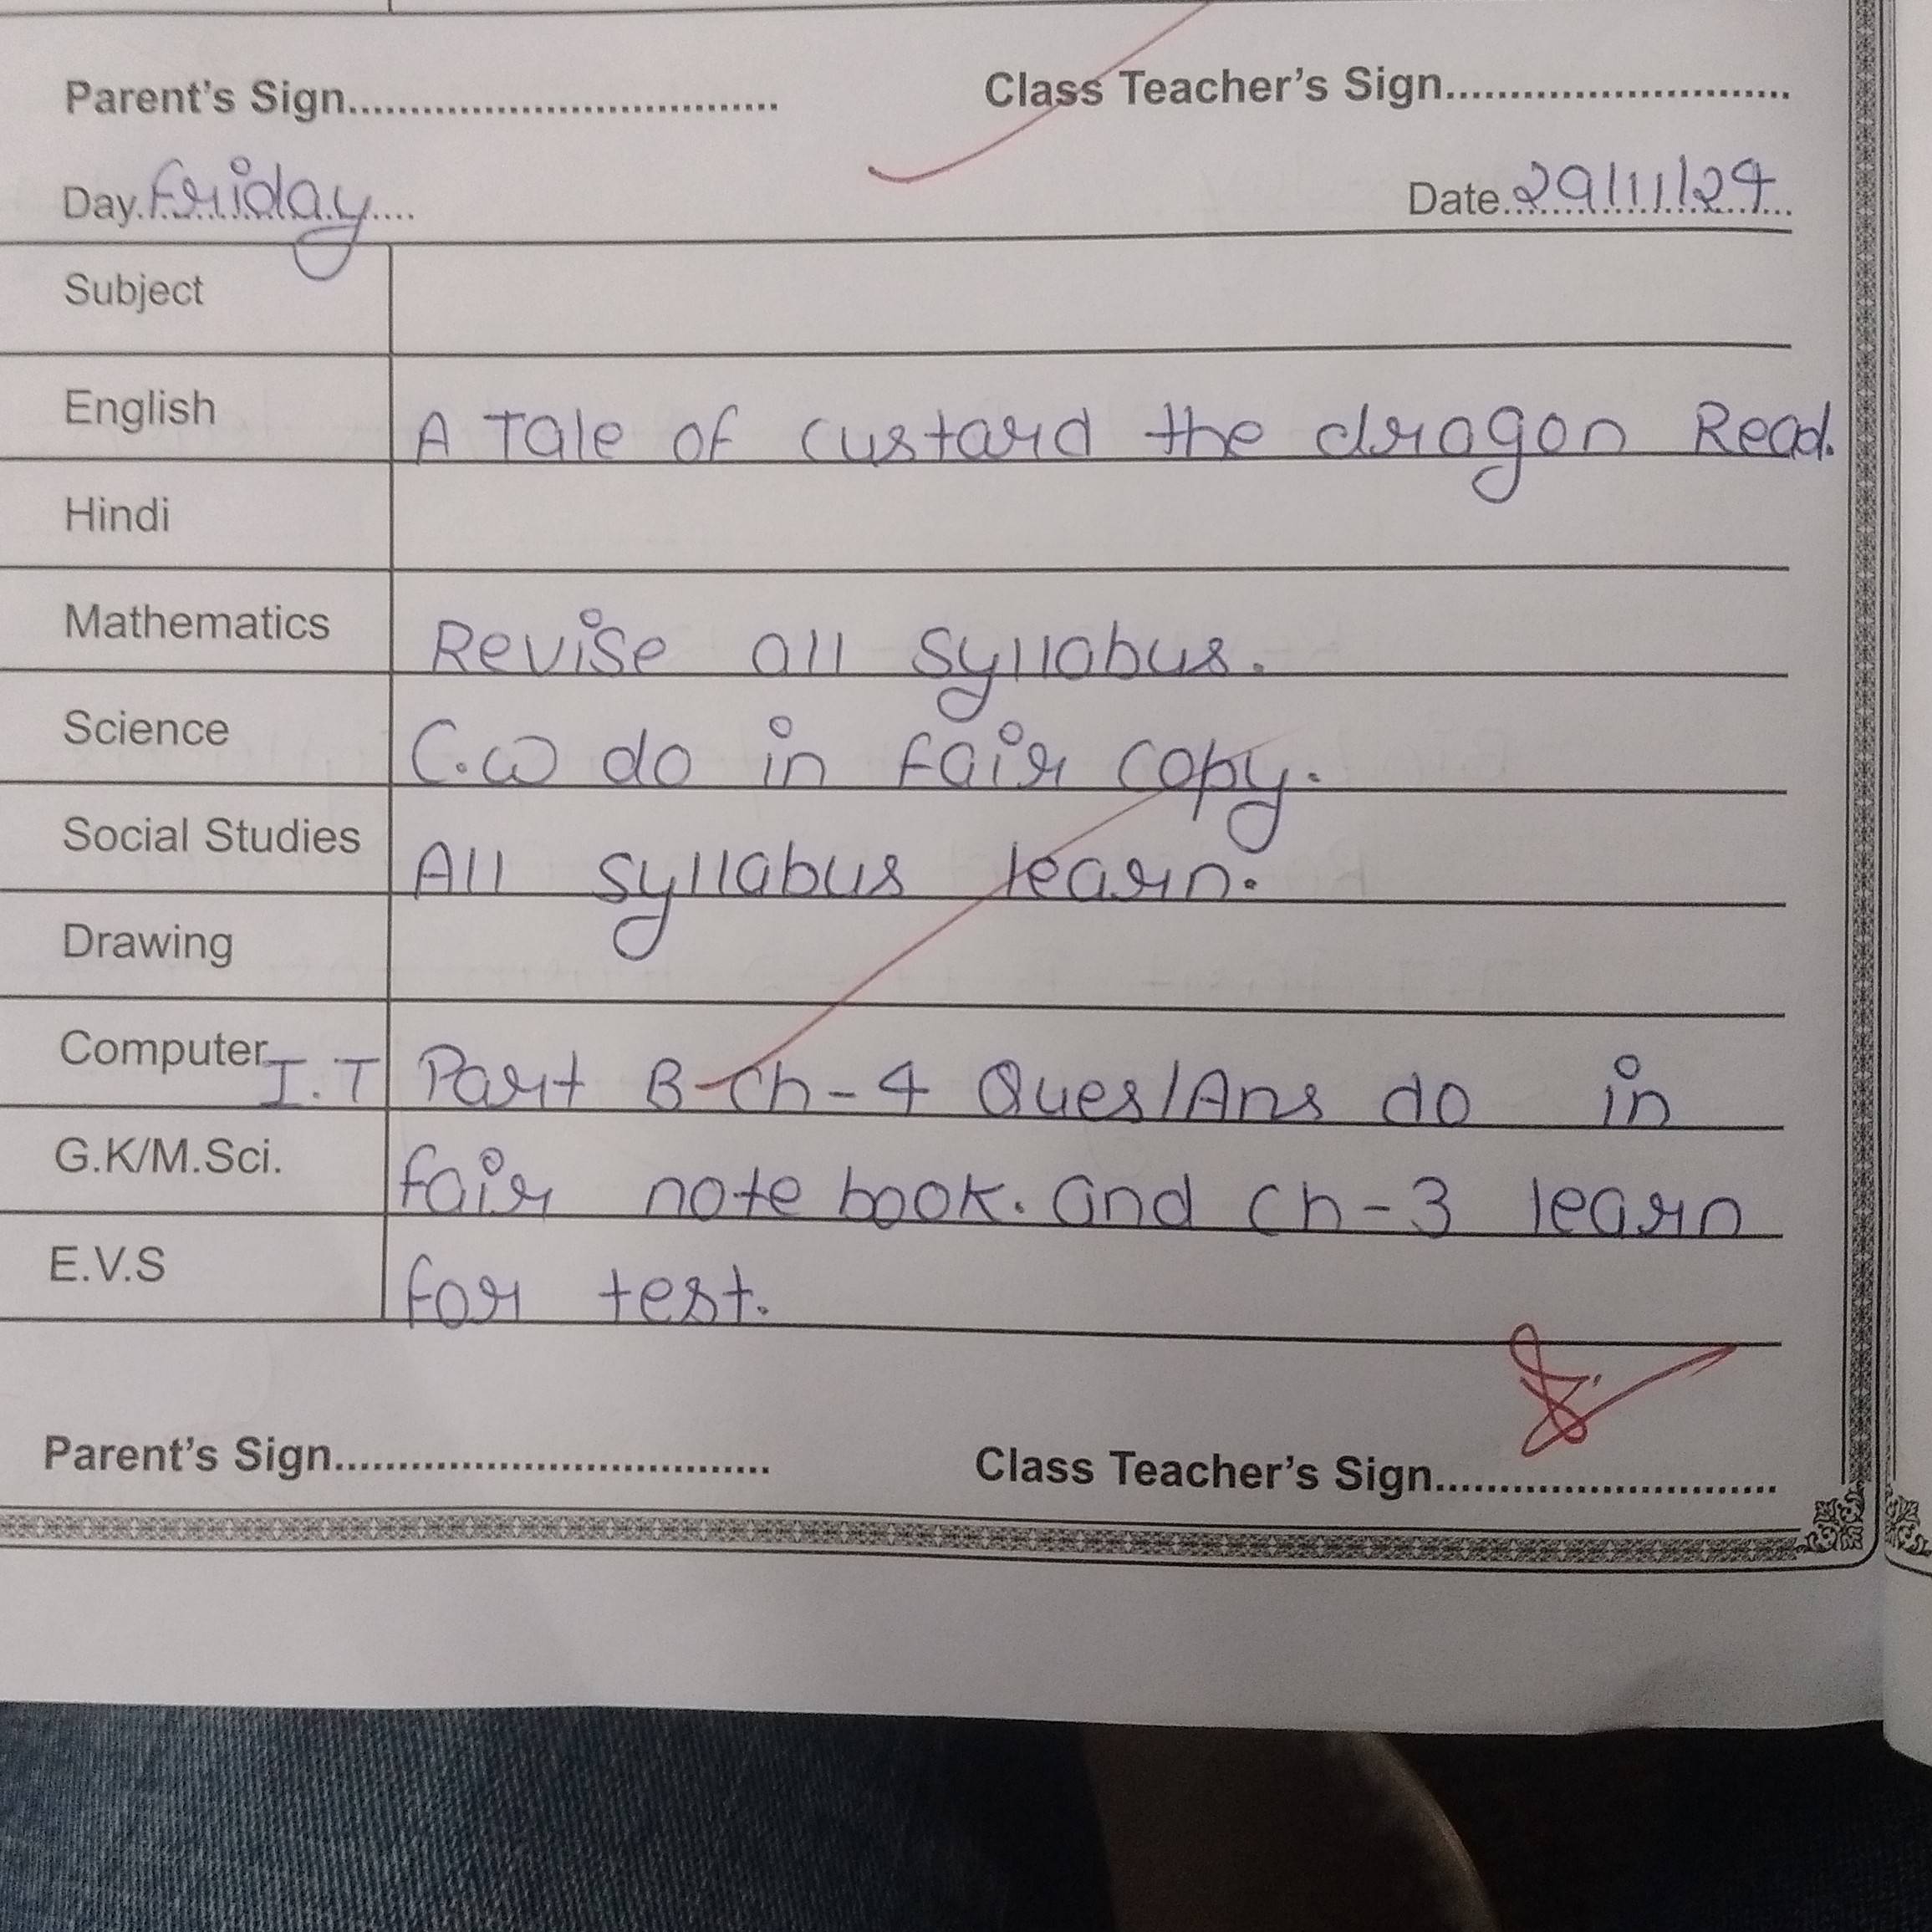 Parent's Sign.................................. Class Teacher's Sign...........................
Day.Friday.... Date.29/11/24
Subject
English A Tale of custard the dragon Read.
Hindi
Mathematics Revise all syllabus.
Science C.w do in fair copy.
Social Studies All syllabus learn.
Drawing
Computer I.T Part B-Ch-4 Ques/Ans do in
G.K/M.Sci. fair note book. and Ch-3 learn
E.V.S for test.
Parent's Sign.................................. Class Teacher's Sign...........................